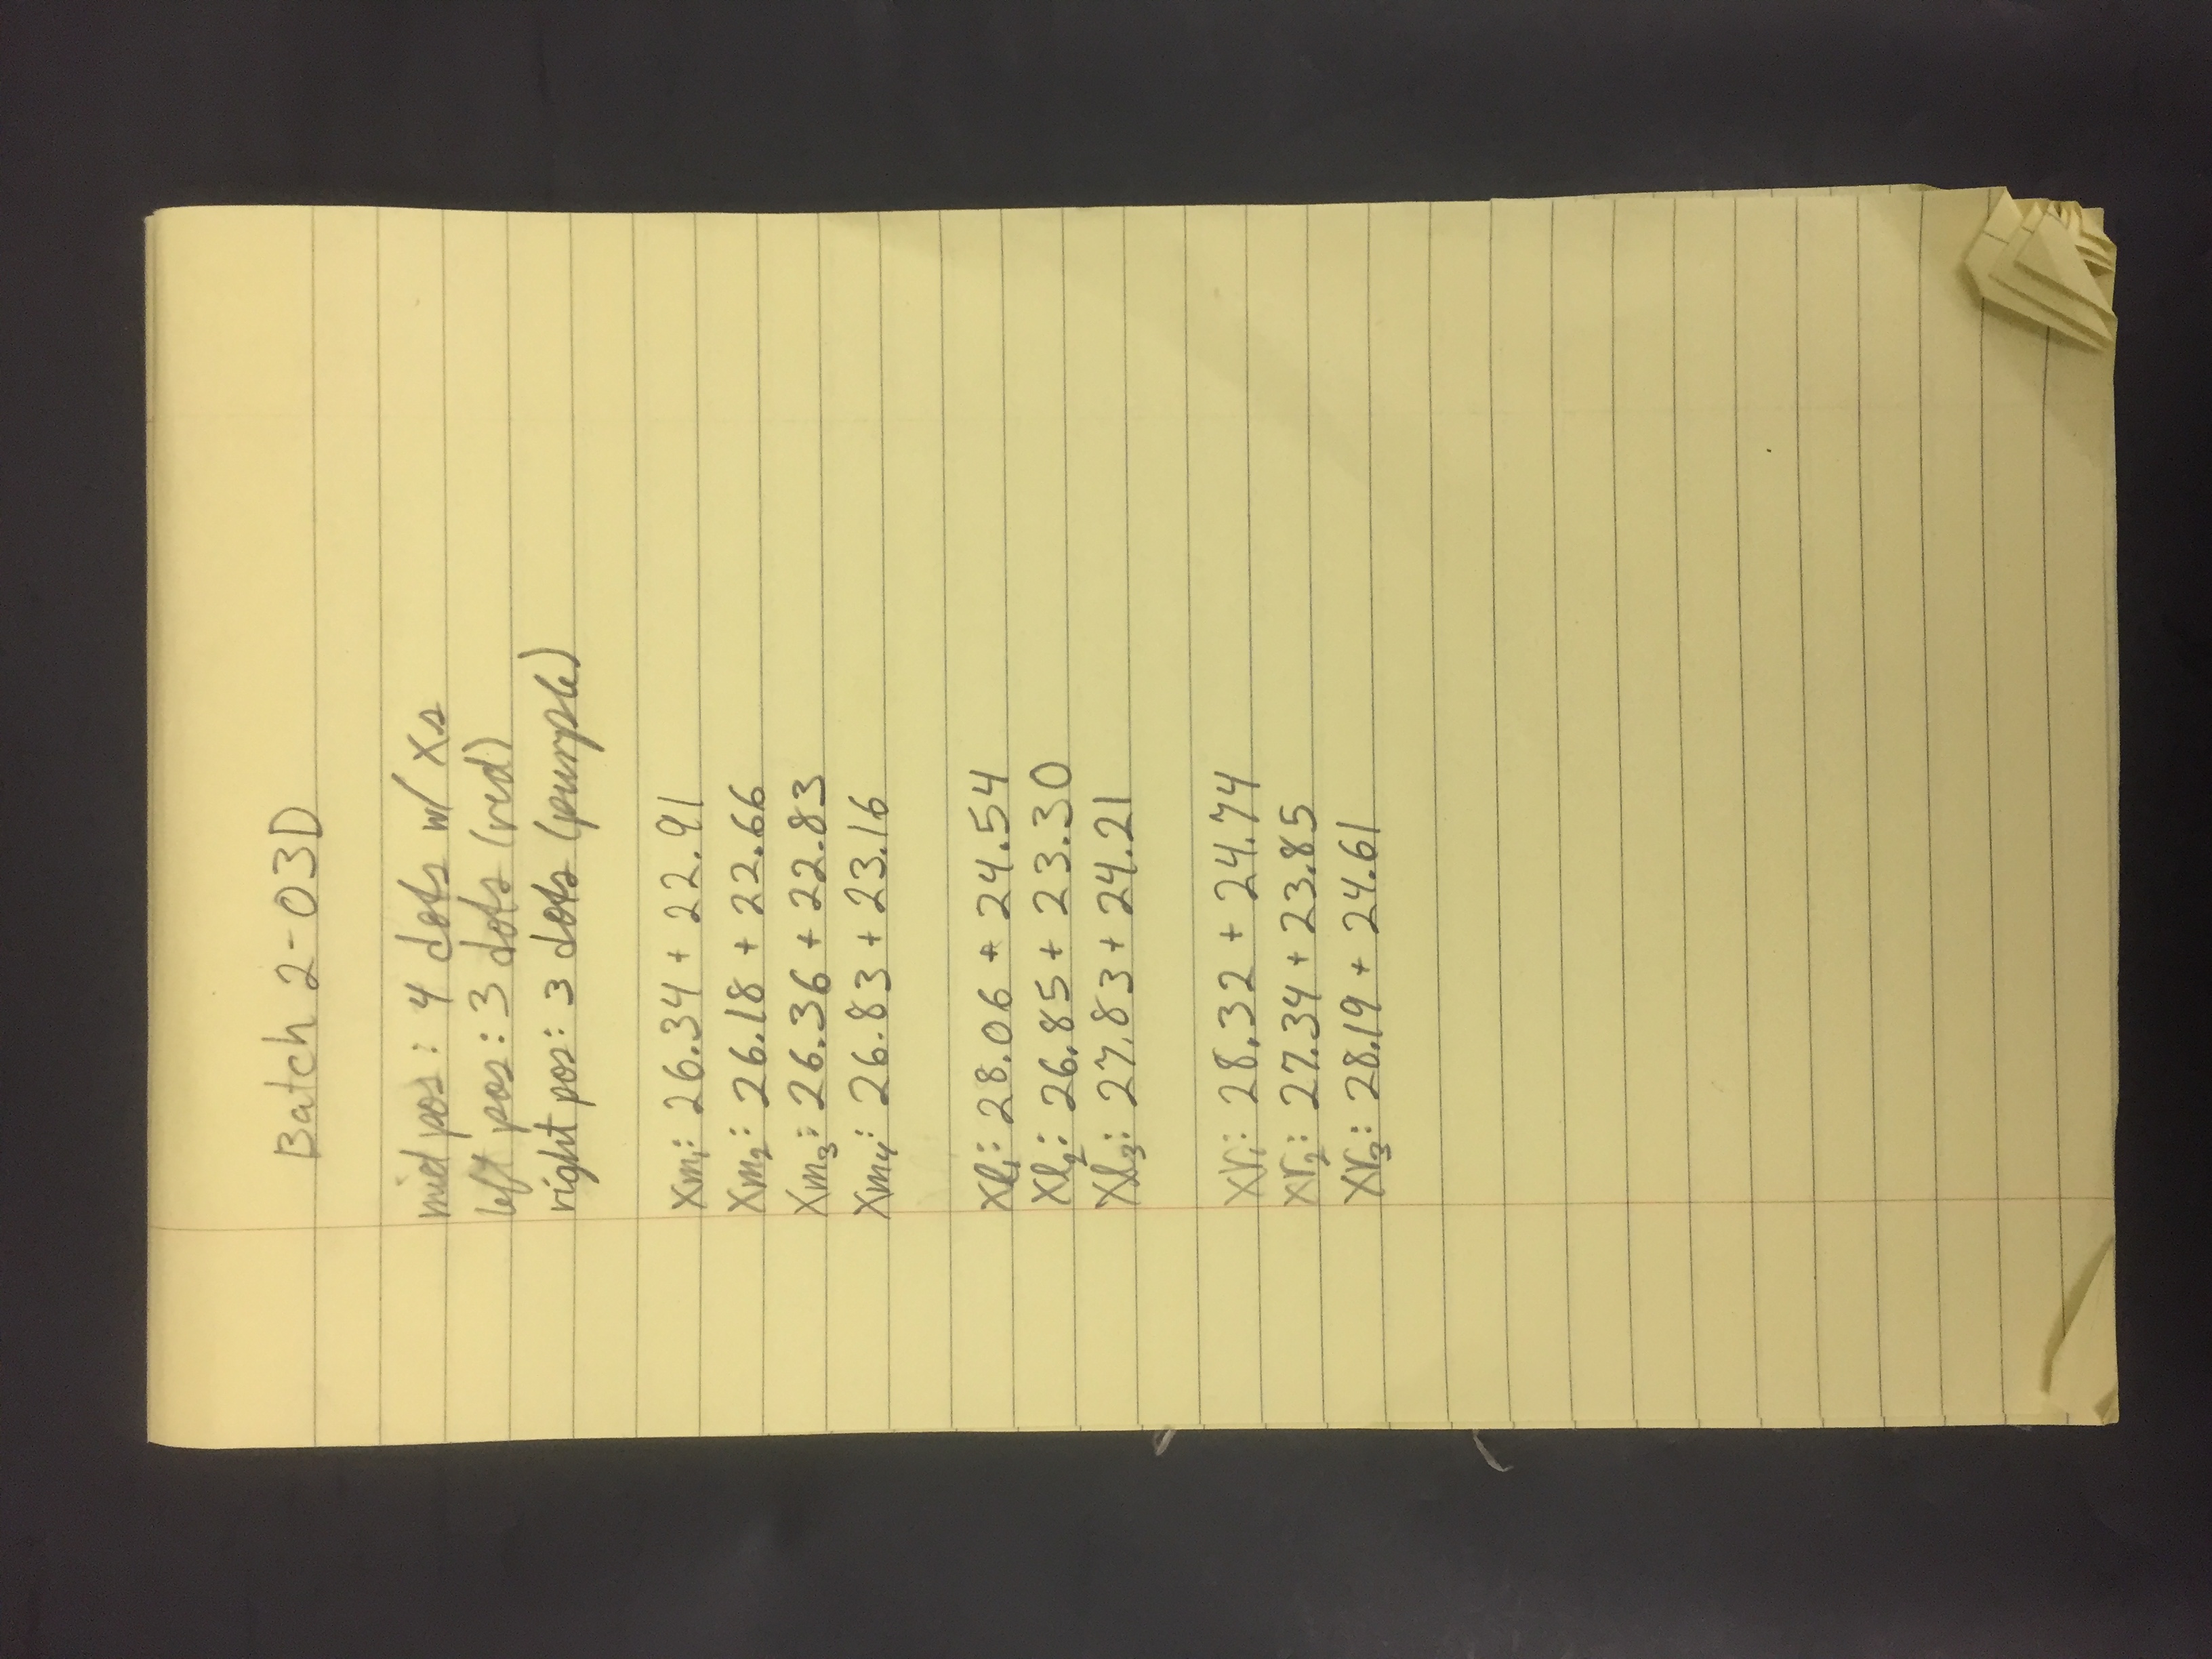 Batch 2-03D
mid pos: 4 dots w/ Xs
left pos: 3 dots (red)
right pos: 3 dots (purple)
Xm₁: 26.34 + 22.91
Xm₂: 26.18 + 22.66
Xm₃: 26.36 + 22.83
Xm₄: 26.83 + 23.16
Xl₁: 28.06 + 24.54
Xl₂: 26.85 + 23.30
Xl₃: 27.83 + 24.21
Xr₁: 28.32 + 24.74
Xr₂: 27.34 + 23.85
Xr₃: 28.19 + 24.61